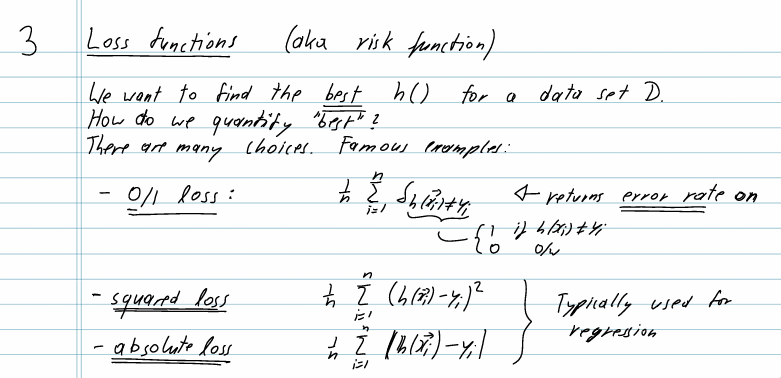 3 Loss functions (aka risk function)
We want to find the best h() for a data set D.
How do we quantify "best"?
There are many choices. Famous examples:
- 0/1 loss: 1/n ∑_{i=1}^{n} δ_{h(x⃗_i)≠y_i} ← returns error rate on
{1 if h(x_i)≠y_i
0 o/w
- squared loss 1/n ∑_{i=1}^{n} (h(x⃗_i)-y_i)² } Typically used for
regression
- absolute loss 1/n ∑_{i=1}^{n} |h(x⃗_i)-y_i|